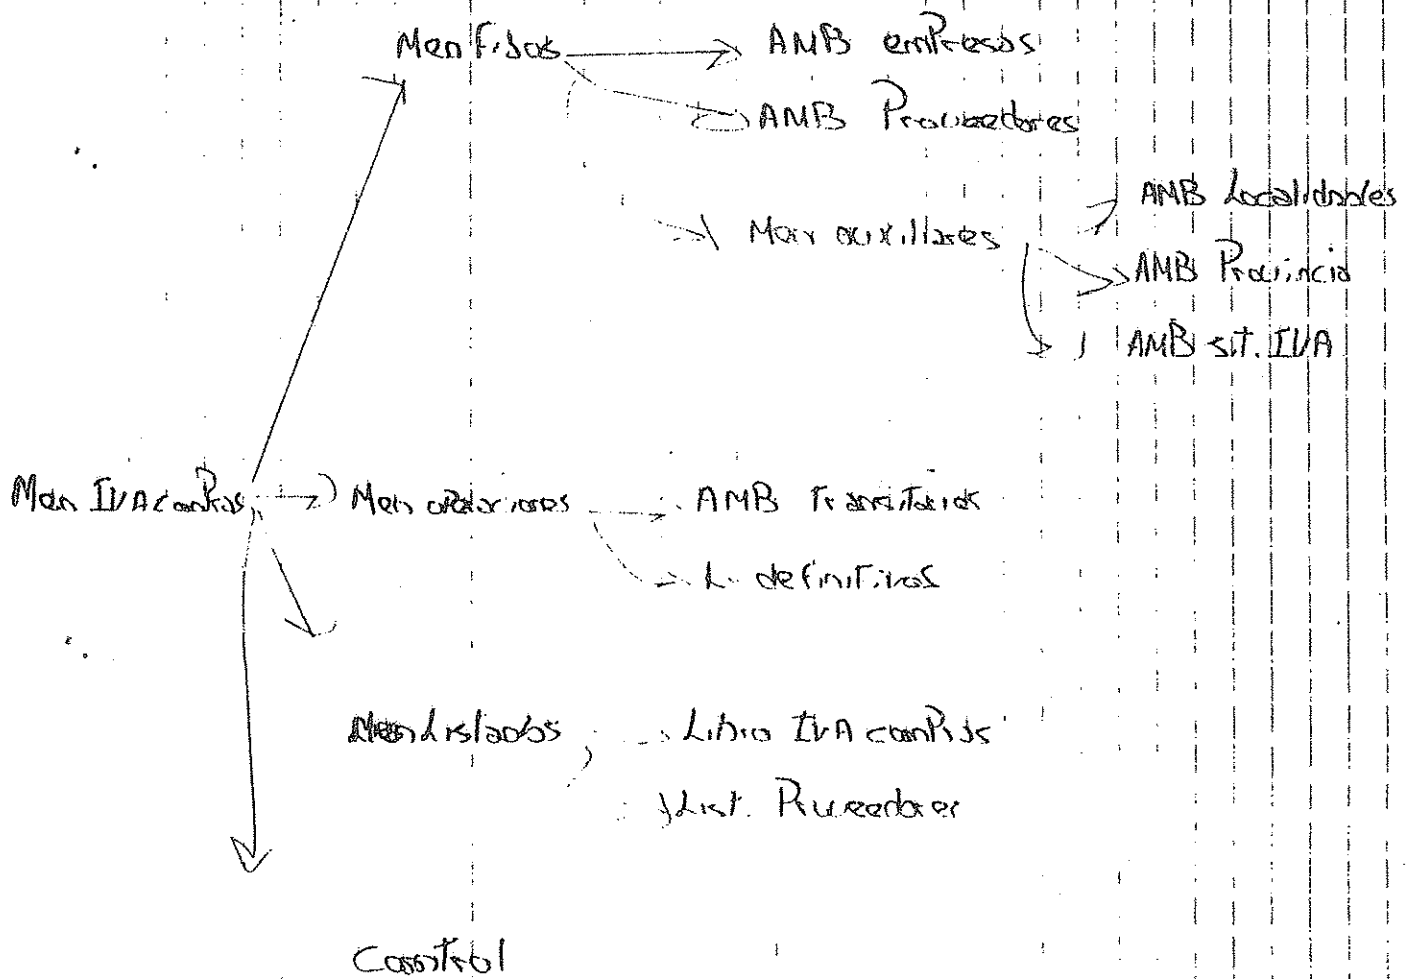 Men Fijos
AMB empresas
AMB Proveedores
Men auxiliares
AMB Localidades
AMB Provincia
AMB sit. IVA
Men IVA compras
Men operaciones
AMB Transitorios
L. definitivos
Men Listados
Libro IVA compras
List. Proveedores
Control